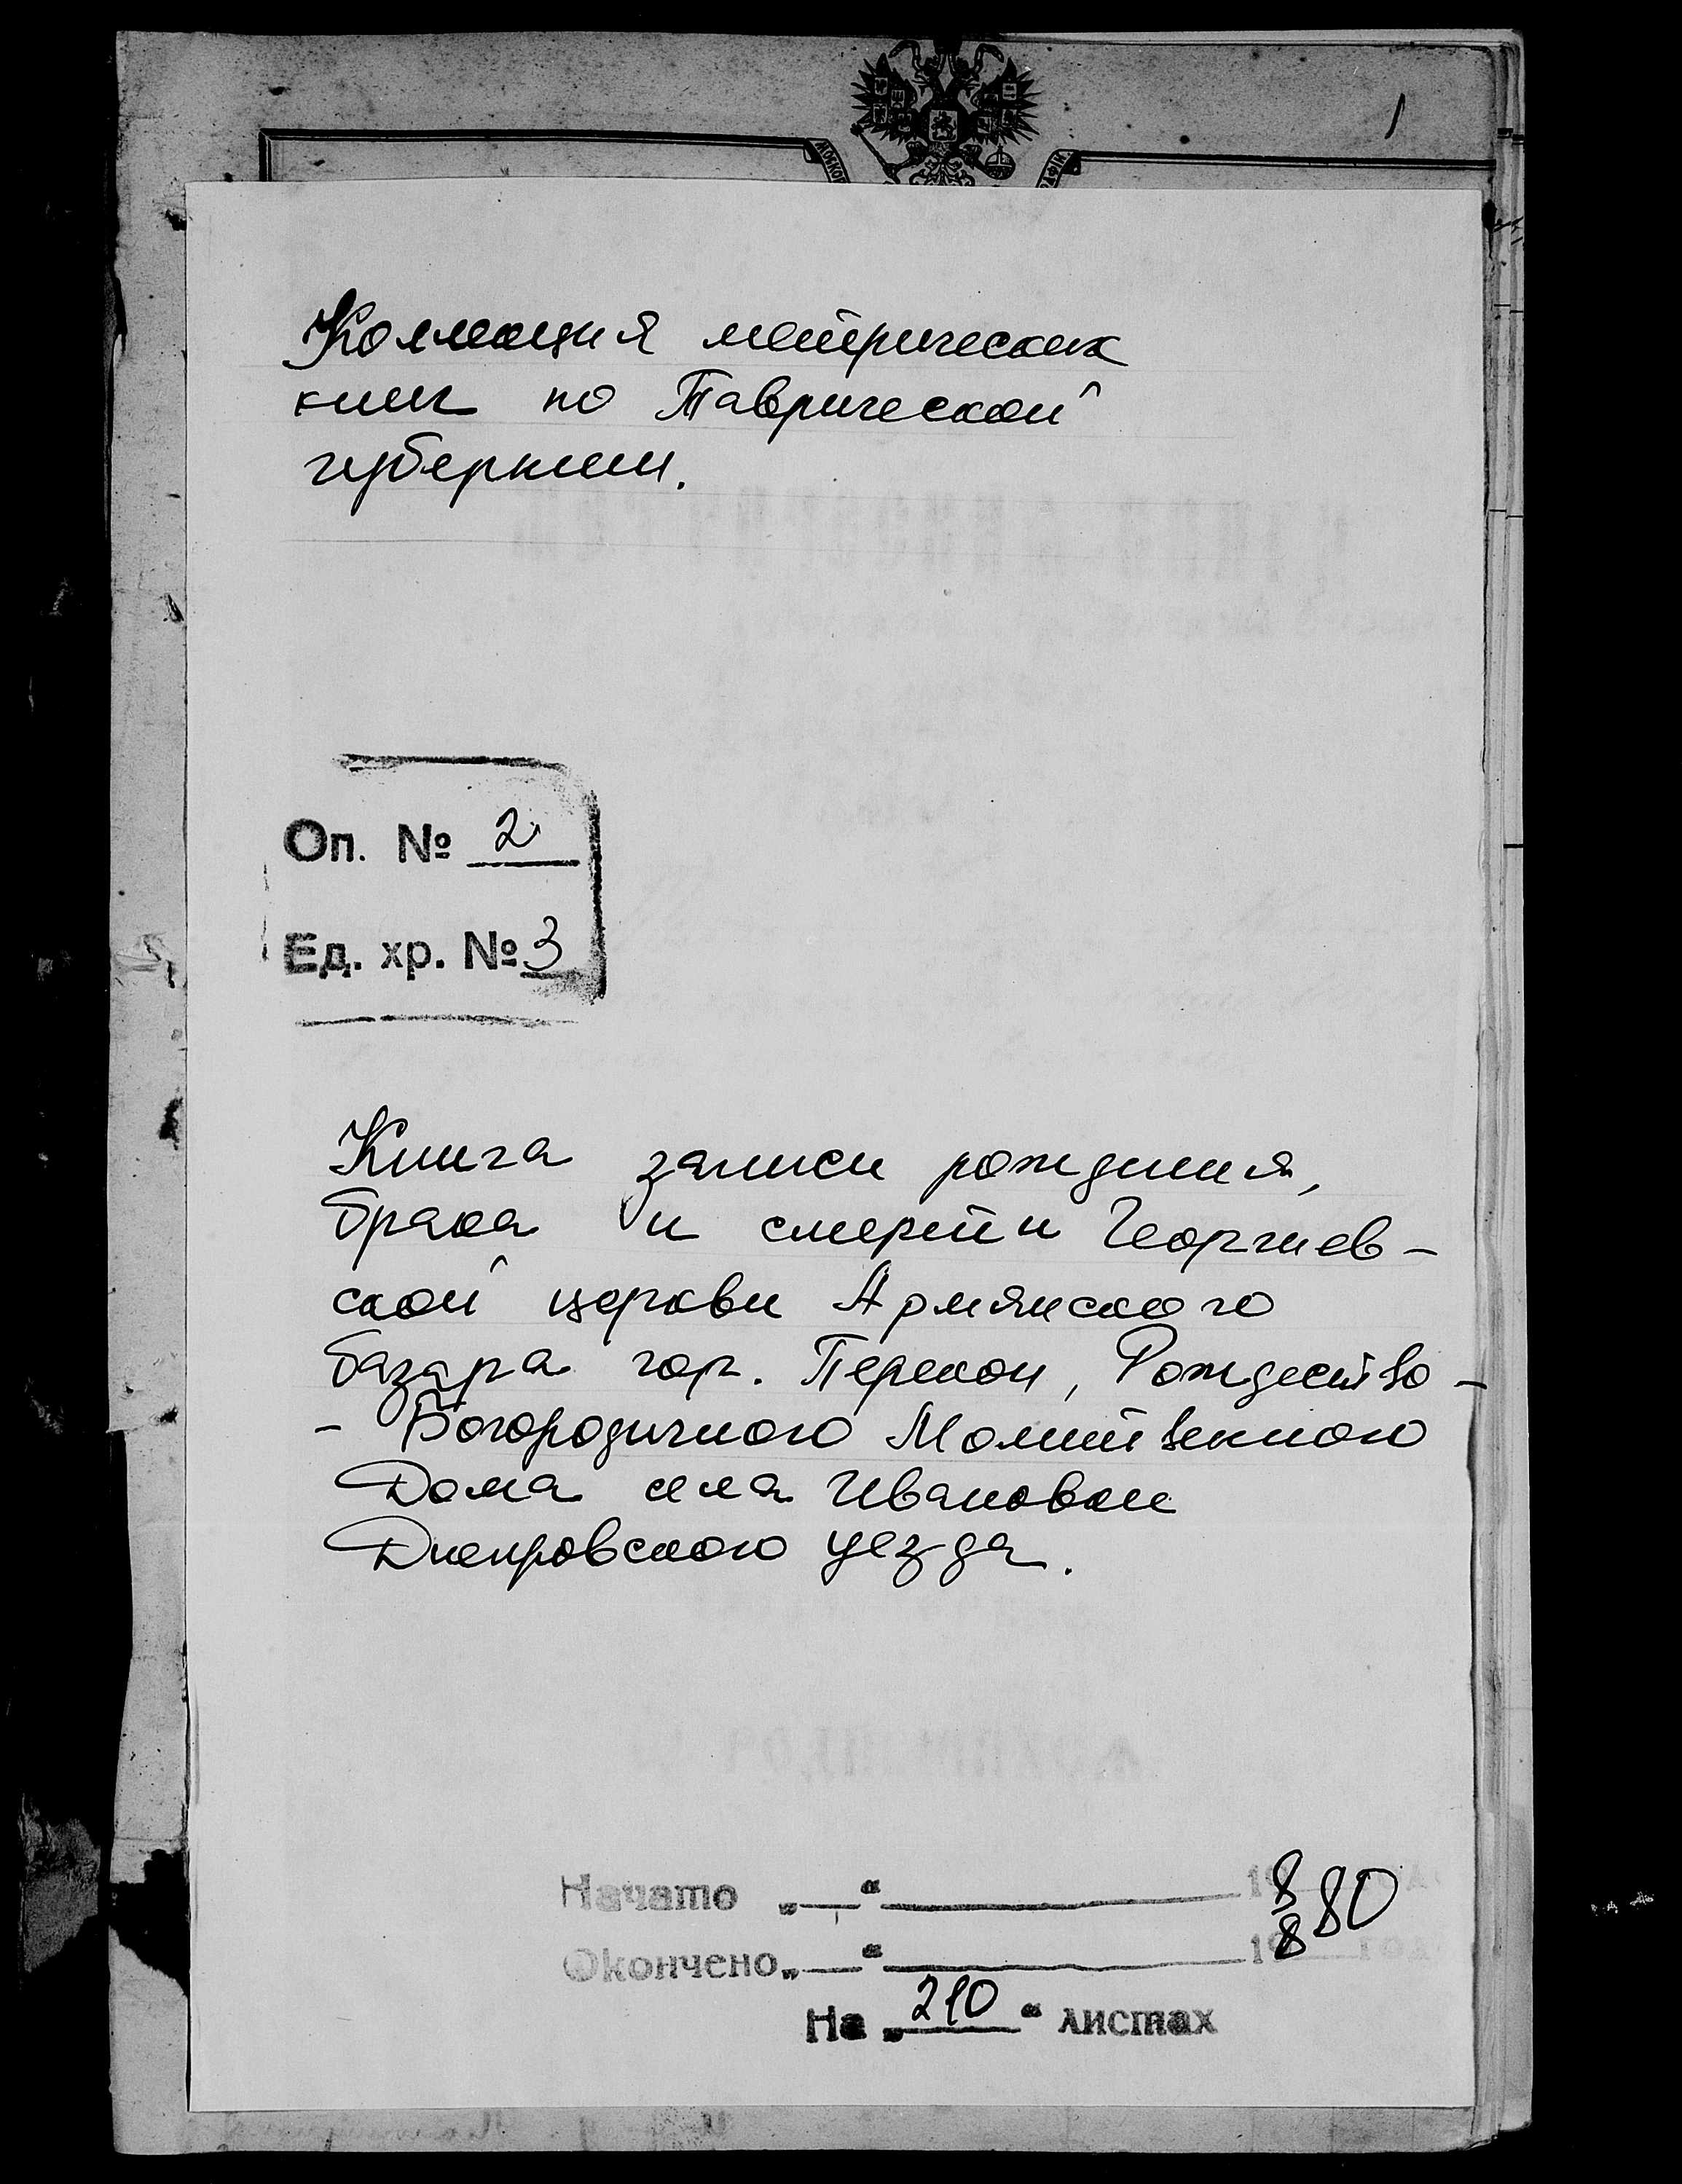 1
Коллекция метрических
книг по Таврической
губернии.
Оп. № 2
Ед. хр. № 3
Книга записи рождения,
брака и смерти Георгиев-
ской церкви Армянского
базара гор. Перекоп, Рождество-
- Богородичного Молитвенного
Дома села Ивановки
Днепровского уезда.
Начато „ “ 1880
Окончено „ “ 18
На „210“ листах